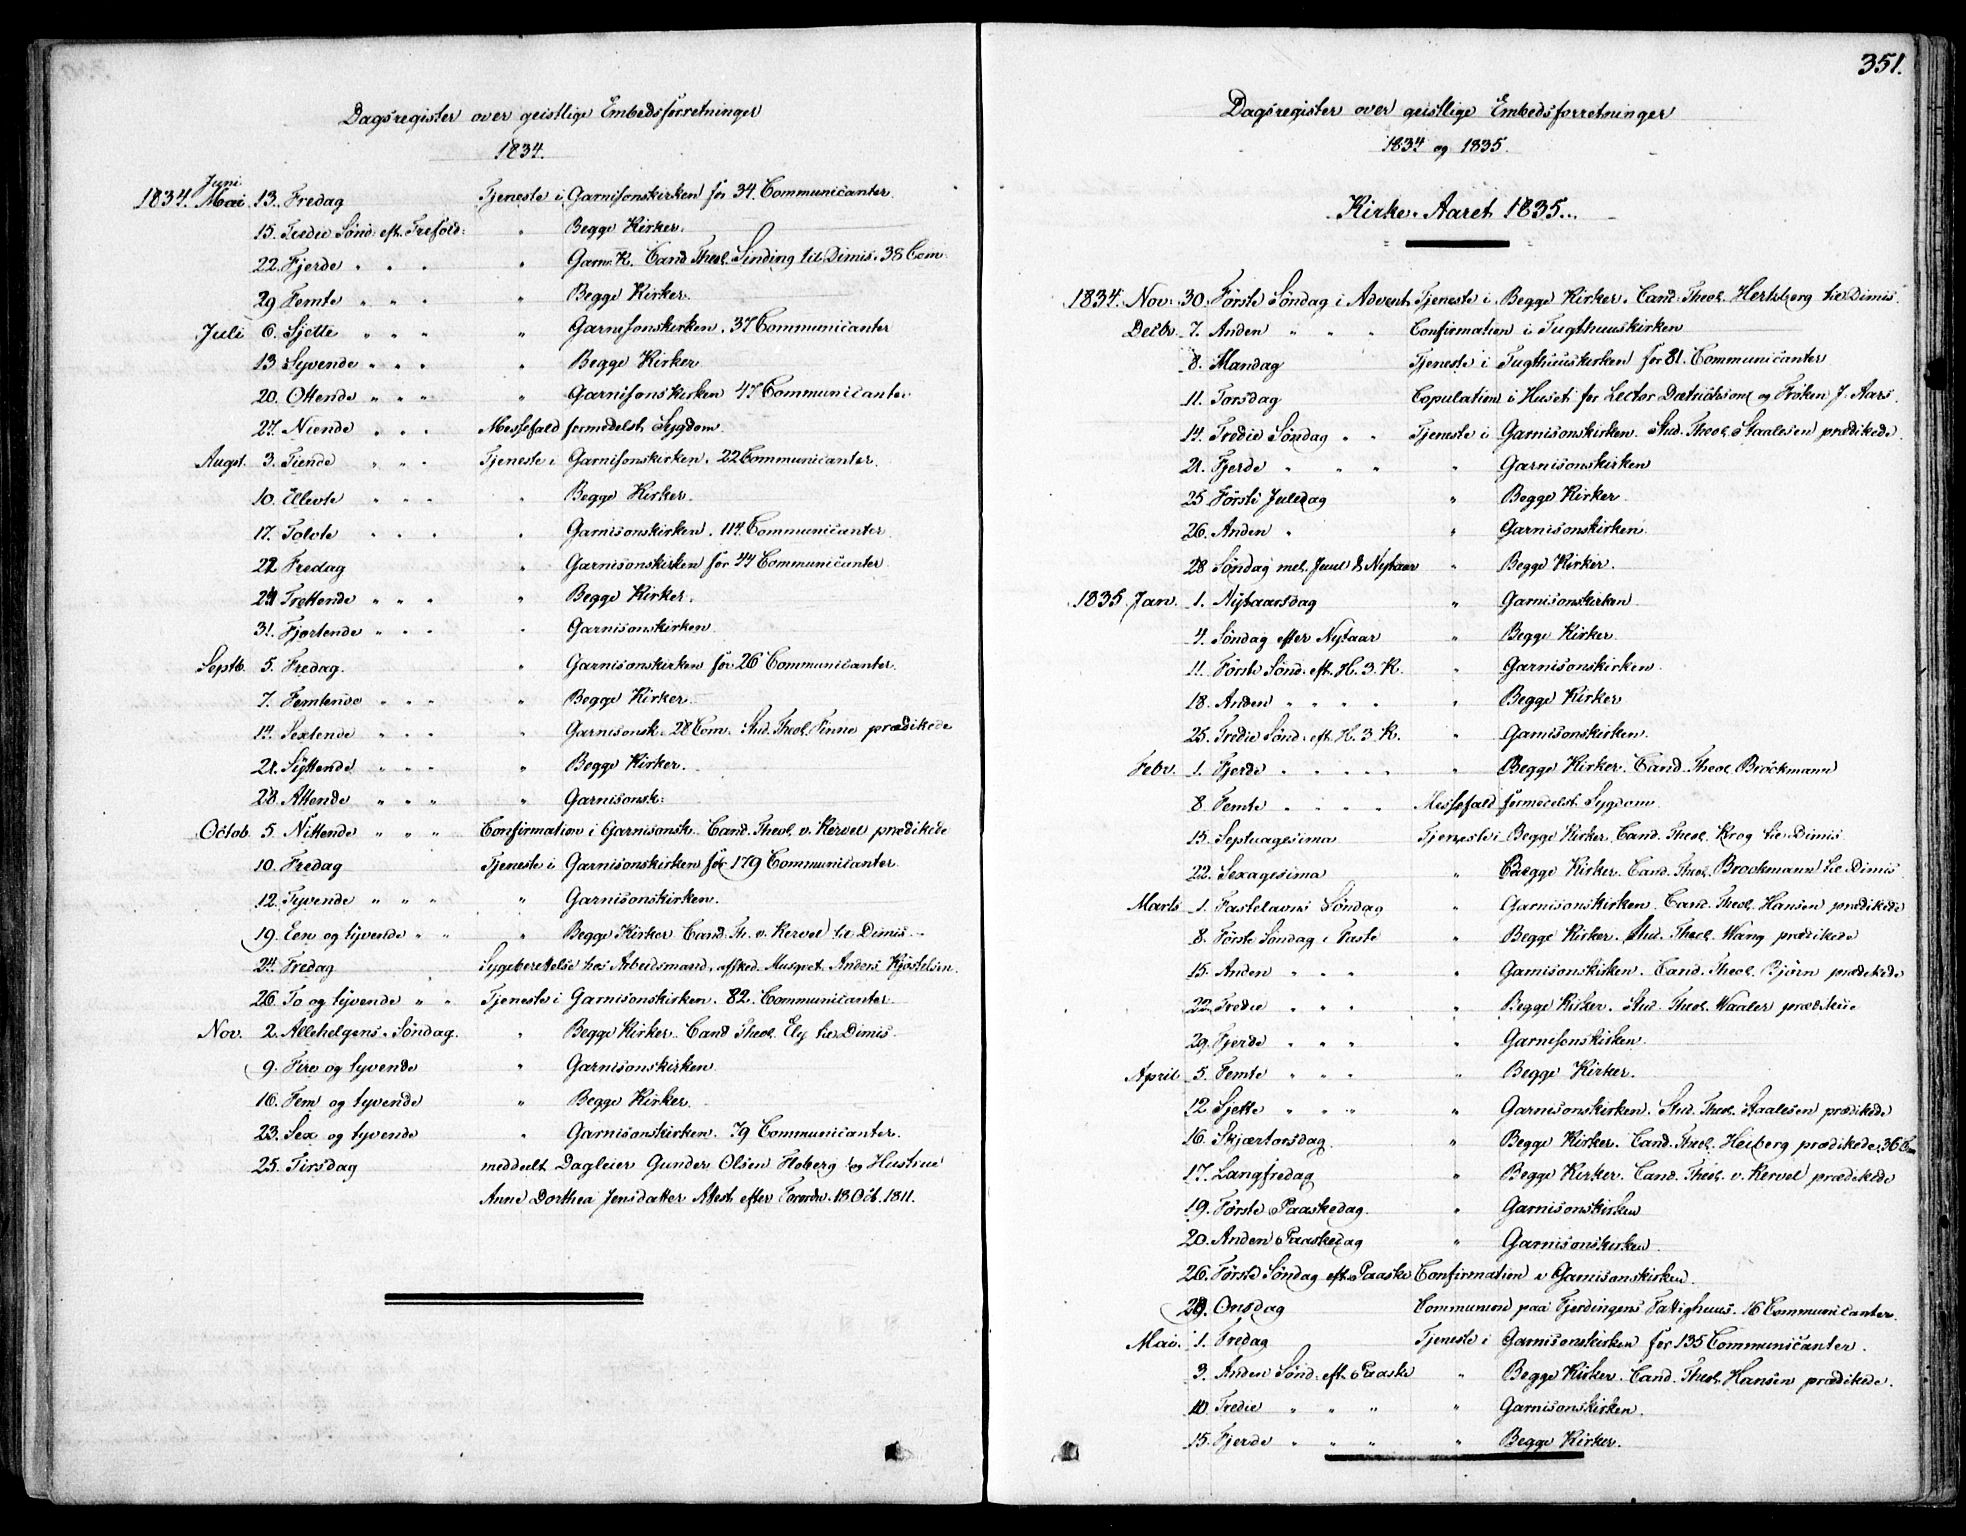 Dagsregister over geistlige Embedsforretninger
1834.
Juni
1834. Mai 13. Fredag Tjeneste i Garnisonskirken for 34 Communicanter
15. Tredie Sønd: eft. Trefold: " Begge Kirker.
22. Fjerde " " " " Garn. K. Cand Theol. Sinding til Dimis. 38 Com
29 Femte " " " " Begge Kirker.
Juli 6. Sjette " " " " Garnisonskirken. 37 Communicanter
13 Syvende " " " " Begge Kirker
20. Ottende " " " " Garnisonskirken 47 Communicanter
27. Niende " " " Messefald formedelst Sygdom.
Augst. 3. Tiende " " " Tjeneste i Garnisonskirken. 22 Communicanter.
10. Ellevte " " " " Begge Kirker.
17. Tolvte " " " " Garnisonskirken. 114 Communicanter
22 Fredag " Garnisonskirken for 44 Communicanter
24 Trettende " " " " Begge Kirker.
31. Fjortende " " " " Garnisonskirken
Septb. 5. Fredag. " Garnisonskirken for 26 Communicanter.
7. Femtende " " " " Begge Kirker
14. Sextende " " " " Garnisonsk. 28 Com. Stud. Theol. Finne prædikede
21. Syttende " " " " Begge Kirker.
28. Attende " " " " Garnisonsk:
Octob. 5. Nittende " " " Confirmation i Garnisonsk. Cand. Theol. v. Kervel prædikede
10. Fredag Tjeneste i Garnisonskirken for 179 Communicanter
12. Tyvende " " " " Garnisonskirken.
19. Een og tyvende " " " Begge Kirker Cand. Th. v. Kervel til Dimis.
24. Fredag Sygeberettelse hos Arbeidsmand, afsked. Musqvet. Anders Kjøstelsen.
26. To og tyvende " " Tjeneste i Garnisonskirken. 82. Communicanter
Nov. 2. Allehelgens Søndag. " Begge Kirker Cand Theol. Ely til Dimis.
9. Fire og tyvende " Garnisonskirken
16. Fem og tyvende " Begge Kirker
23. Sex og tyvende " Garnisonskirken. 79 Communicanter.
25. Tirsdag meddeelt Dagleier Gunder Olsen Floberg og Hustrue
Anne Dorthea Jensdatter Attest efter Forordn. 18 Oct. 1811.
351.
Dagsregister over geistlige Embedsforretninger
1834 og 1835.
Kirke-Aaret 1835.
1834. Nov. 30. Første Søndag i Advent Tjeneste i Begge Kirker. Cand. Theol. Hertzberg til Dimis.
Decbr. 7. Anden " " " Confirmation i Tugthuuskirken
8. Mandag Tjeneste i Tugthuuskirken for 81. Communicanter
11. Torsdag Copulation i Huset for Lector Dietrichson og Frøken J. Aars.
14. Tredie Søndag " " Tjeneste i Garnisonskirken. Stud. Theol. Staalesen prædikede.
21. Fjerde " " " " Garnisonskirken
25 Første Juledag " Begge Kirker.
26. Anden " " Garnisonskirken.
28 Søndag mel. Juul & Nytaar " Begge Kirker.
1835 Jan. 1. Nytaarsdag " Garnisonskirken
4. Søndag efter Nytaar " Begge Kirker.
11. Første Sønd. eft. H. 3 K. " Garnisonskirken
18. Anden " " " " " Begge Kirker
25. Tredie Sønd. eft. H. 3 K. " Garnisonskirken.
Febr. 1. Fjerde " " " " " Begge Kirker. Cand. Theol. Brochmann
8. Femte " " " " Messefald formedelst Sygdom
15. Septuagesima Tjeneste i Begge Kirker. Cand. Theol. Krog til Dimis
22. Sexagesima " Begge Kirker. Cand. Theol. Brochmann til Dimis
Marts 1. Fastelavns Søndag " Garnisonskirken. Cand. Theol. Hansen prædikede
8. Første Søndag i Faste " Begge Kirker. Stud. Theol. Wang prædikede
15. Anden " " " " Garnisonskirken. Cand. Theol. Bjørn prædikede
22. Tredie " " " " Begge Kirker. Stud. Theol. Waaler prædikede
29. Fjerde " " " " Garnisonskirken.
April 5. Femte " " " " Begge Kirker.
12 Sjette " " " " Garnisonskirken. Stud. Theol. Staalesen prædikede
16. Skjærtorsdag " Begge Kirker. Cand. Theol. Heiberg prædikede, 36 Com
17. Langfredag " Begge Kirker. Cand. Theol. v. Kervel prædikede
19. Første Paaskedag. " Garnisonskirken
20. Anden Paaskedag " Garnisonskirken.
26. Første Søndag eft. Paaske Confirmation i Garnisonskirken.
29. Onsdag Communion paa Fjerdingens Fattighuus. 16 Communicanter.
Mai. 1. Fredag Tjeneste i Garnisonskirken for 135 Communicanter.
3. Anden Sønd. eft. Paaske " Begge Kirker. Cand. Theol. Hansen prædikede.
10. Tredie " " " " Garnisonskirken.
15. Fjerde " " " " Begge Kirker.